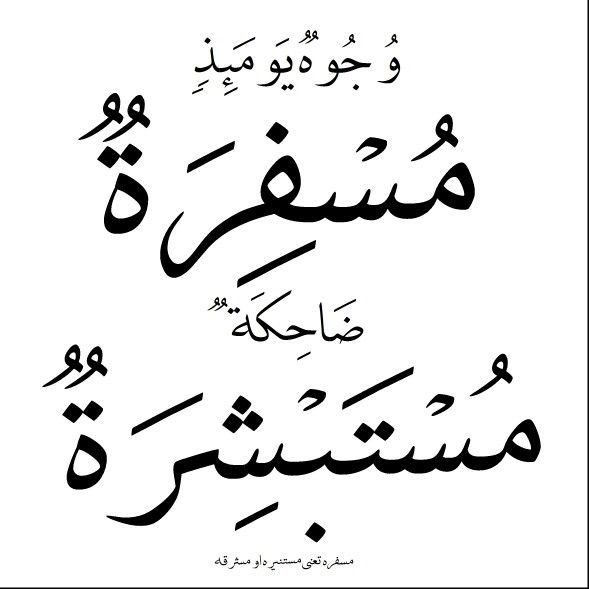 وُجُوهٌ يَوْمَئِذٍ
مُسْفِرَةٌ
ضَاحِكَةٌ
مُسْتَبْشِرَةٌ
مسفره تعني مستنيره او مشرقه